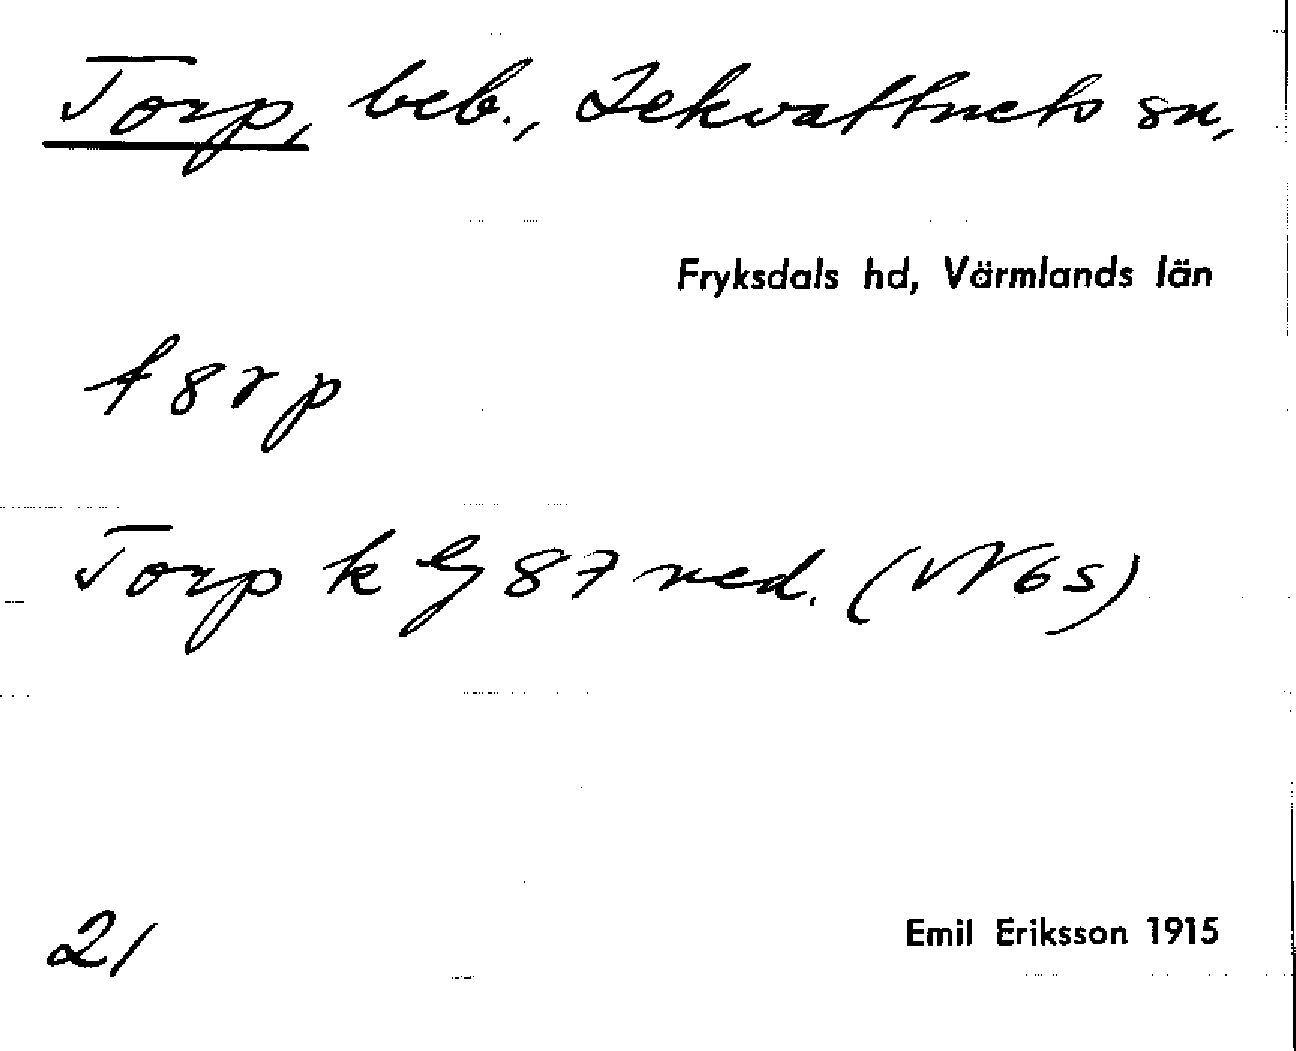 Torp, beb., Lekvattnets sn,
Fryksdals hd, Värmlands län
t8rp
Torp k Ej 87 ned. (VN6s)
21
Emil Eriksson 1915